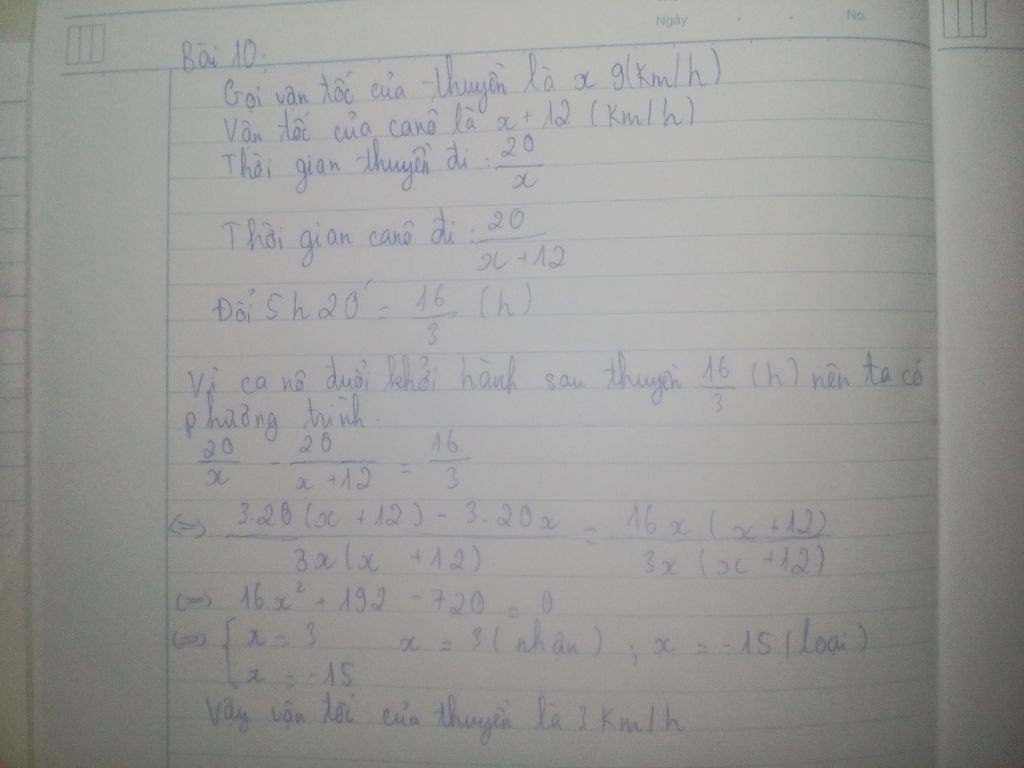 Ngày . . No.
Bài 10:
Gọi vận tốc của thuyền là x (km/h)
Vận tốc của canô là x + 12 (km/h)
Thời gian thuyền đi : 20/x
Thời gian canô đi : 20/(x + 12)
Đổi 5h20' = 16/3 (h)
Vì ca nô đuổi khởi hành sau thuyền 16/3 (h) nên ta có
phương trình.
20/x - 20/(x + 12) = 16/3
<=> (3.20(x + 12) - 3.20x)/(3x(x + 12)) = 16x(x + 12)/(3x(x + 12))
<=> 16x² + 192 - 720 = 0
<=> { x = 3 x = 3 (nhận) ; x = -15 (loại)
x = -15
Vậy vận tốc của thuyền là 3 km/h